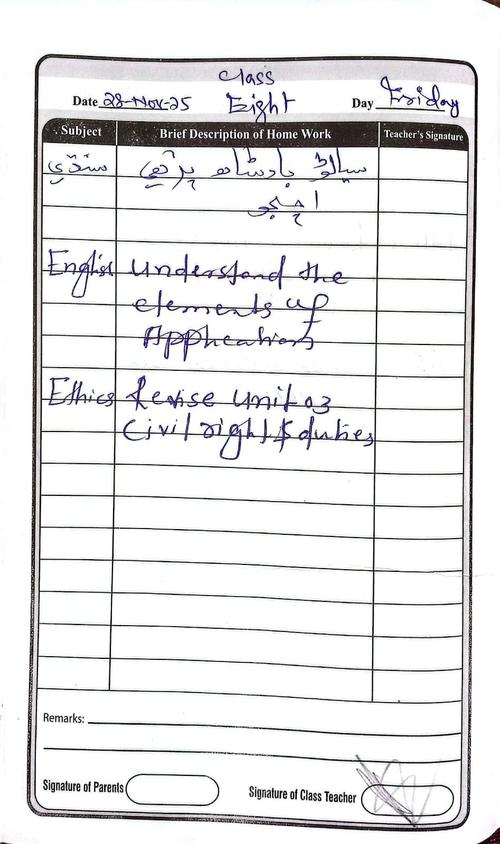 Class
Date 28-Nov-25 Eight Day Friday
Subject Brief Description of Home Work Teacher's Signature
سنڌي بادشاھ پڙهي
اچجو
English Understand the
elements of
Applications
Ethics Revise Unit 03
Civil right & duties
Remarks:
Signature of Parents Signature of Class Teacher